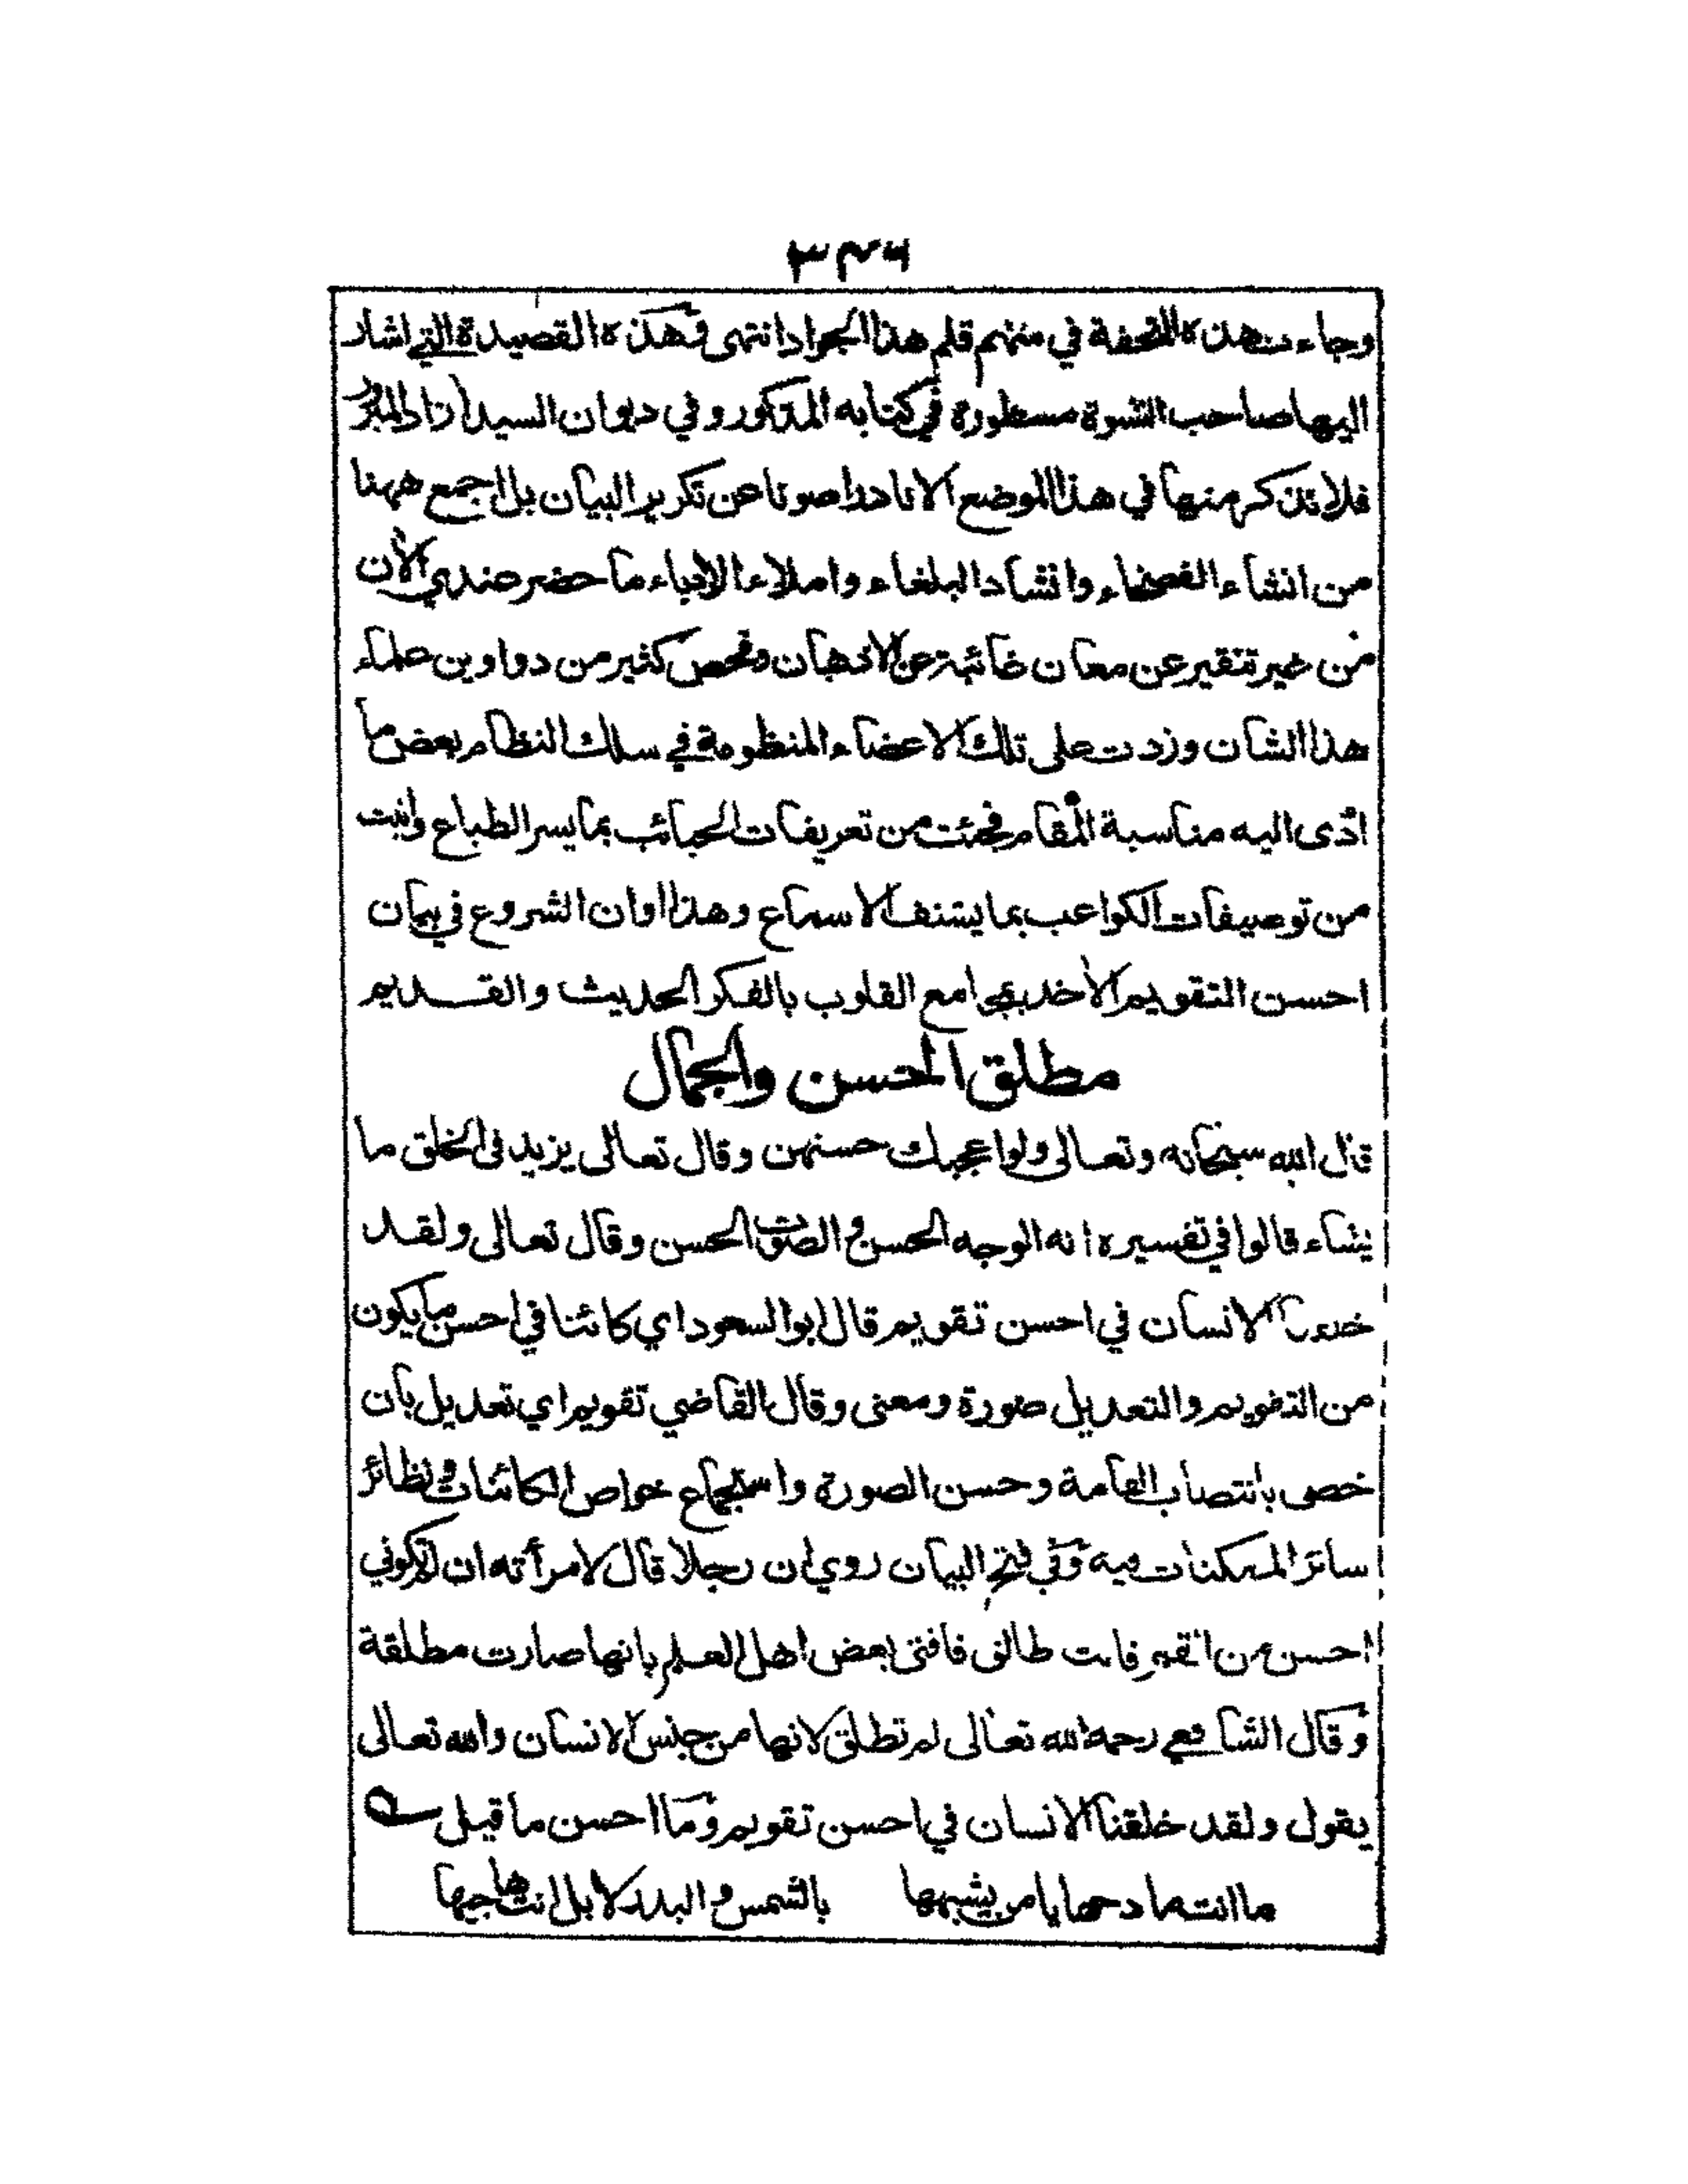 ٣٤٦
وجاءت هذه التحفة في منتهم قلم هذا الجواد انتهى وهذه القصيدة التي اشار
اليها صاحب النشوة مسطورة في كتابه المذكور وفي ديوان السيد ازاد المبرور
فلا نذكر منها في هذا الموضع الا نادرا صونا عن تكرير البيان بل اجمع ههنا
من انشاء الفصحاء وانشاد البلغاء واملاء الادباء ما حضر عندي الآن
من غير تنقير عن معان غائبة عن الاذهان وفحص كثير من دواوين علماء
هذا الشان وزدت على تلك الاعضاء المنظومة في سلك النظام بعض ما
ادّى اليه مناسبة المقام فجئت من تعريفات الحبائب بما يسر الطباع واتيت
من توصيفات الكواعب بما يشنف الاسماع وهذا اوان الشروع في بيان
احسن التقويم الأخذ بمجامع القلوب بالفكر الحديث والقديم
مطلق الحسن والجمال
قال الله سبحانه وتعالى ولو اعجبك حسنهن وقال تعالى يزيد فى الخلق ما
يشاء قالوا في تفسيره انه الوجه الحسن والصوت الحسن وقال تعالى ولقد
خلقنا الانسان في احسن تقويم قال ابو السعود اي كائنا في احسن ما يكون
من التقويم والتعديل صورة ومعنى وقال القاضي تقويم اي تعديل بان
خص بانتصاب القامة وحسن الصورة واستجماع خواص الكائنات ونظائر
سائر الممكنات فيه وفي فتح البيان روي ان رجلا قال لامرأته ان لم تكوني
احسن من القمر فانت طالق فافتى بعض اهل العلم بانها صارت مطلقة
وقال الشافعي رحمه الله تعالى لم تطلق لانها من جنس الانسان والله تعالى
يقول ولقد خلقنا الانسان في احسن تقويم وما احسن ما قيل
ما انت مادحها يا من يشبهها بالشمس والبدر لا بل انت هاجيها